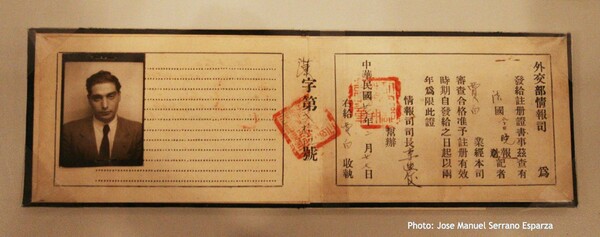 外交部情報司 為
發給註冊證書事茲查有
法國今晚報記者
業經本司
審查合格准予註冊有效
時期自發給之日起以兩
年為限此證
幫辦
情報司司長李迪俊
中華民國 年 月 日
右給 白 收執
漢字第 號
Photo: Jose Manuel Serrano Esparza